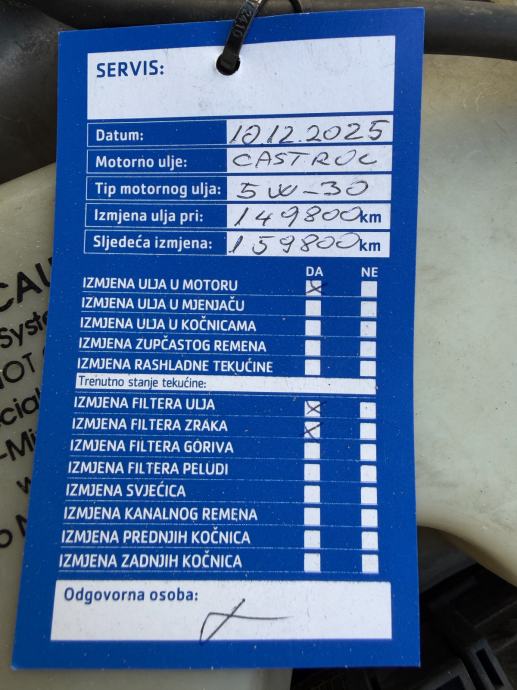 SERVIS:
Datum: 10.12.2025
Motorno ulje: CASTROL
Tip motornog ulja: 5W-30
Izmjena ulja pri: 149800 km
Sljedeća izmjena: 159800 km
DA NE
IZMJENA ULJA U MOTORU x
IZMJENA ULJA U MJENJAČU
IZMJENA ULJA U KOČNICAMA
IZMJENA ZUPČASTOG REMENA
IZMJENA RASHLADNE TEKUĆINE
Trenutno stanje tekućine:
IZMJENA FILTERA ULJA x
IZMJENA FILTERA ZRAKA x
IZMJENA FILTERA GORIVA
IZMJENA FILTERA PELUDI
IZMJENA SVJEĆICA
IZMJENA KANALNOG REMENA
IZMJENA PREDNJIH KOČNICA
IZMJENA ZADNJIH KOČNICA
Odgovorna osoba:
CAU
Syste
NOT
ecial
-Mi
w